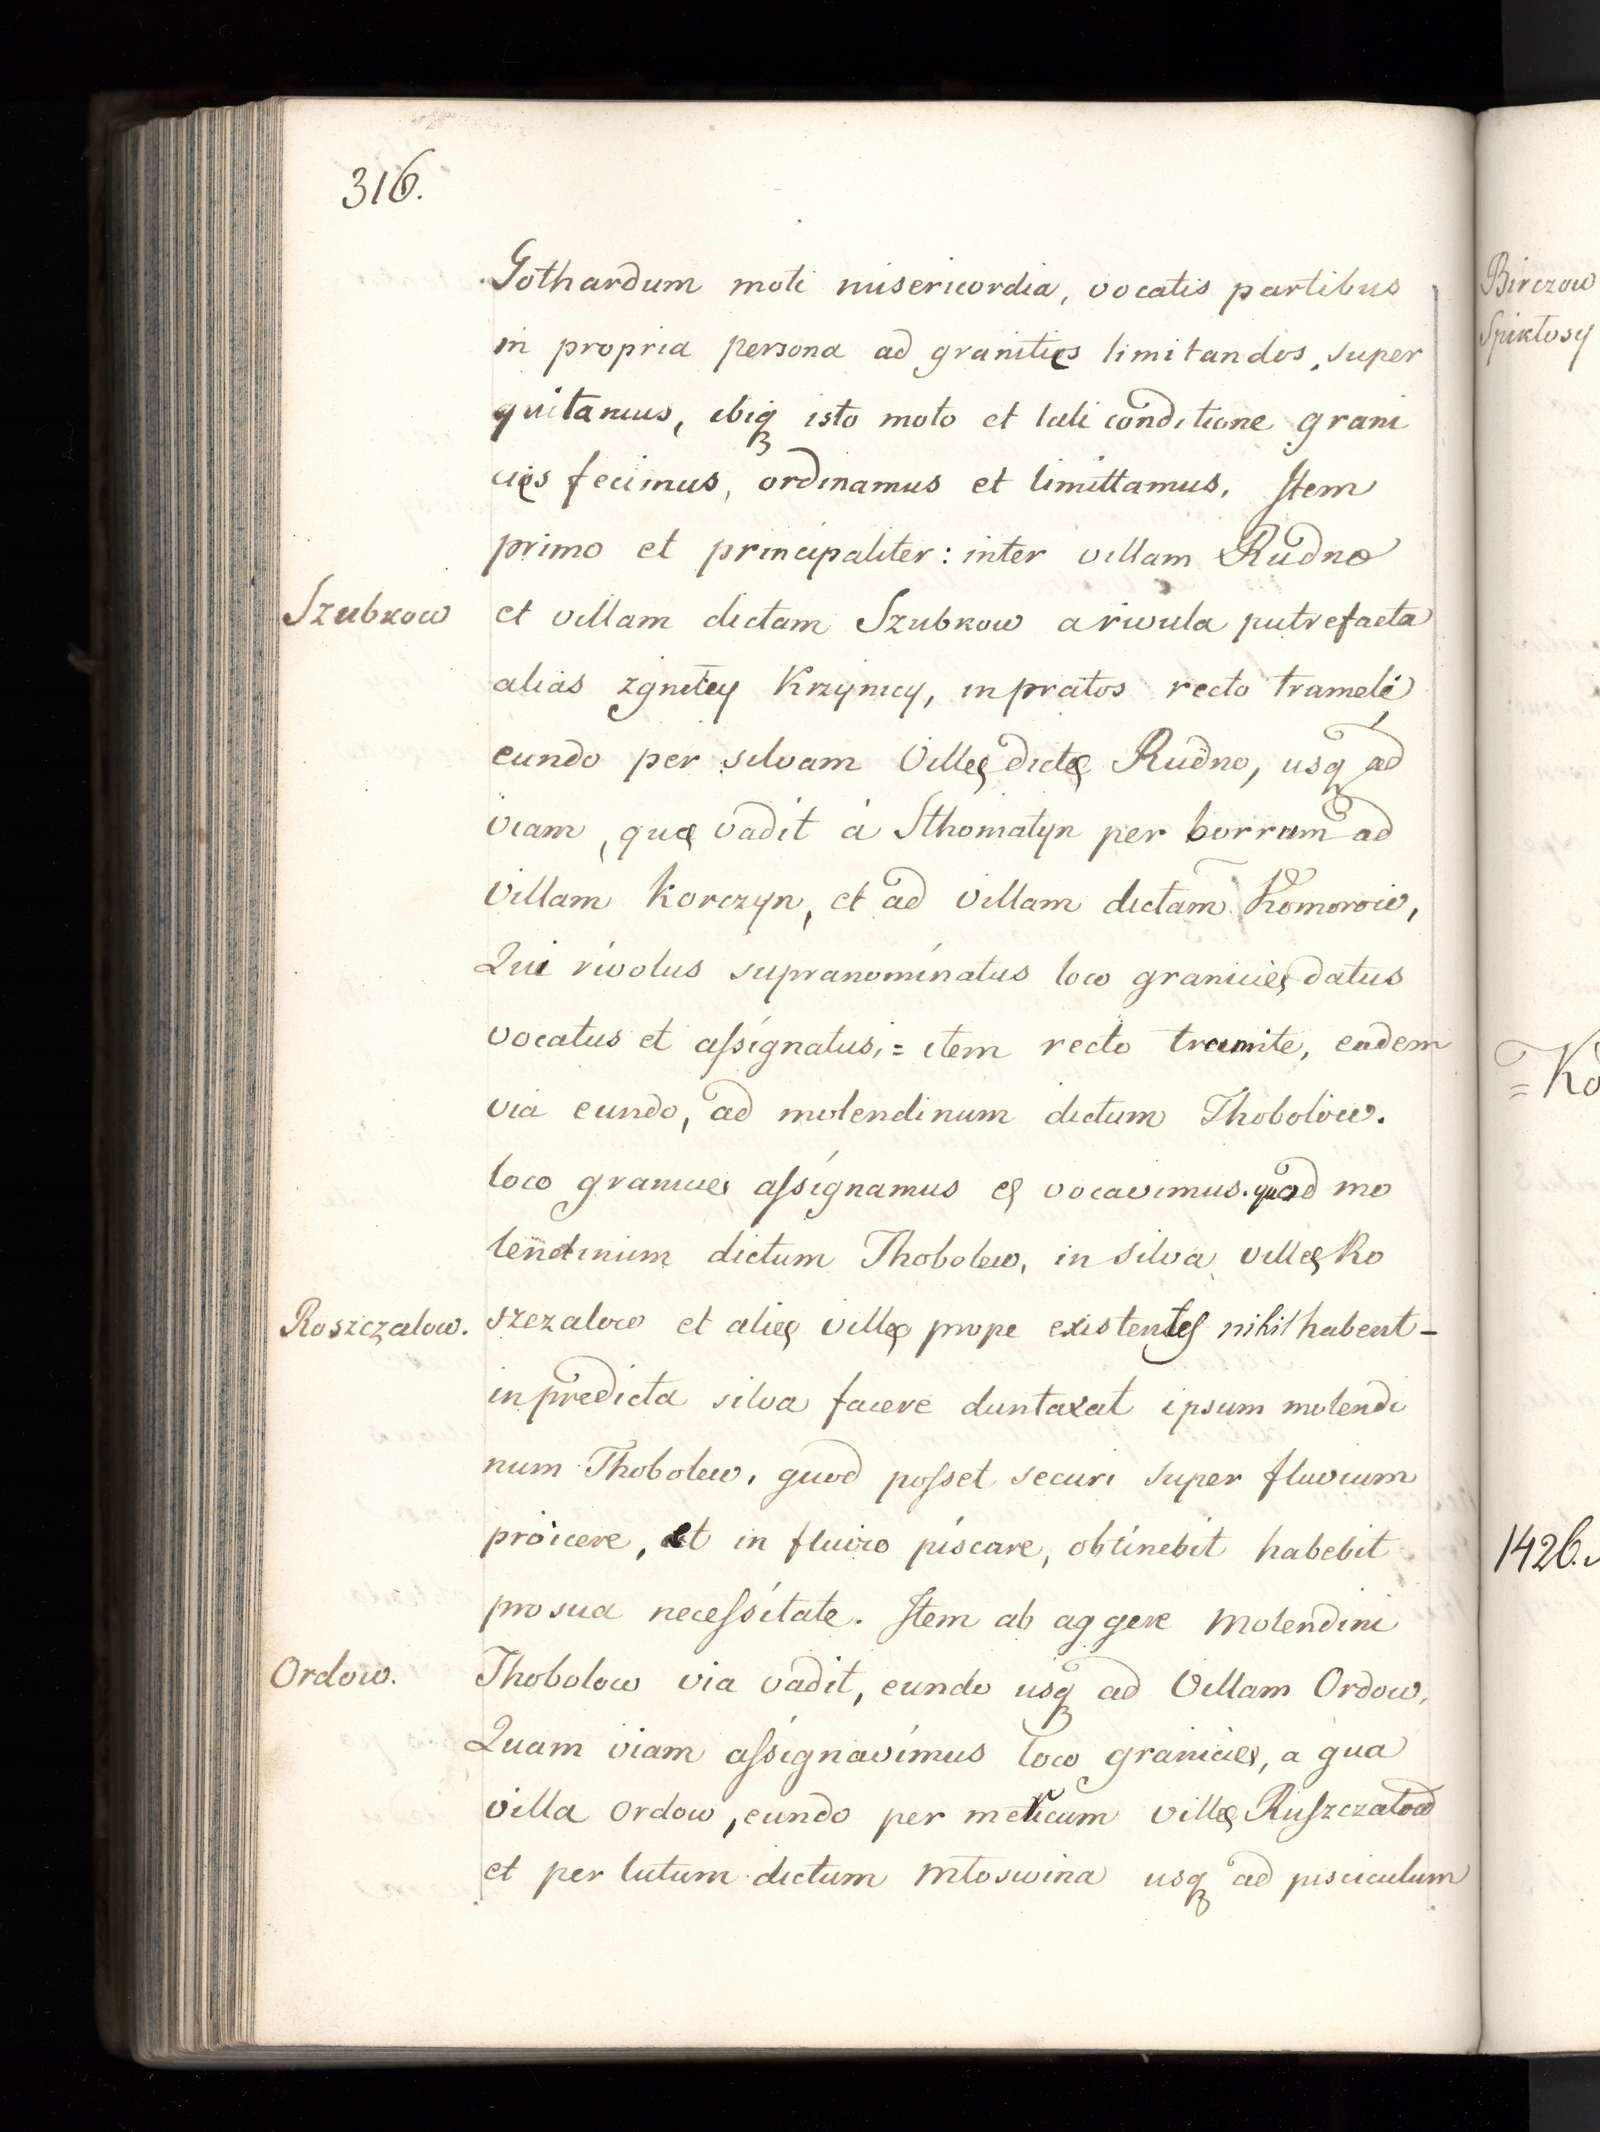 316.
Gothardum moti misericordia, vocatis partibus
in propria persona ad granitięs limitandos, super
quitamus, ibiq isto moto et tali conditione grani
cięs fecimus, ordinamus et limittamus, Item
primo et principaliter: inter villam Rudno
Szubkow
et villam dictam Szubkow a rivula putrefacta
alias zgniłey Krzynicy, in pratos recto tramele
eundo per silvam Villę dictę Rudno, usq ad
viam, quę vadit á Sthomatyn per borram ad
villam Korczyn, et ad villam dictam Komorow,
Qui rivolus supranominatus loco granicię datus
vocatus et assignatus, = item recto tramite, eadem
via eundo, ad molendinum dictum Tholobow.
loco granicię assignamus et vocavimus. quod mo
lendinum dictum Thobolow, in silva villę Ro
Roszczalow.
szczalow et alię villę prope existentes nihil habent-
in predicta silva facere duntaxat ipsum molendi
num Thobolow, quod posset securi super fluvium
proicere, et in fluvio piscare, obtinebit habebit
pro sua necessitate. Item ab aggere Molendini
Ordow.
Thobolow via vadit, eundo usq ad Villam Ordow,
Quam viam assignavimus loco granicię, a qua
villa Ordow, eundo per mericam villę Ruszczalow
et per lutum dictum Młoswina usq ad pisciculum
Birczow
Spikłosy
=Ko
1426.